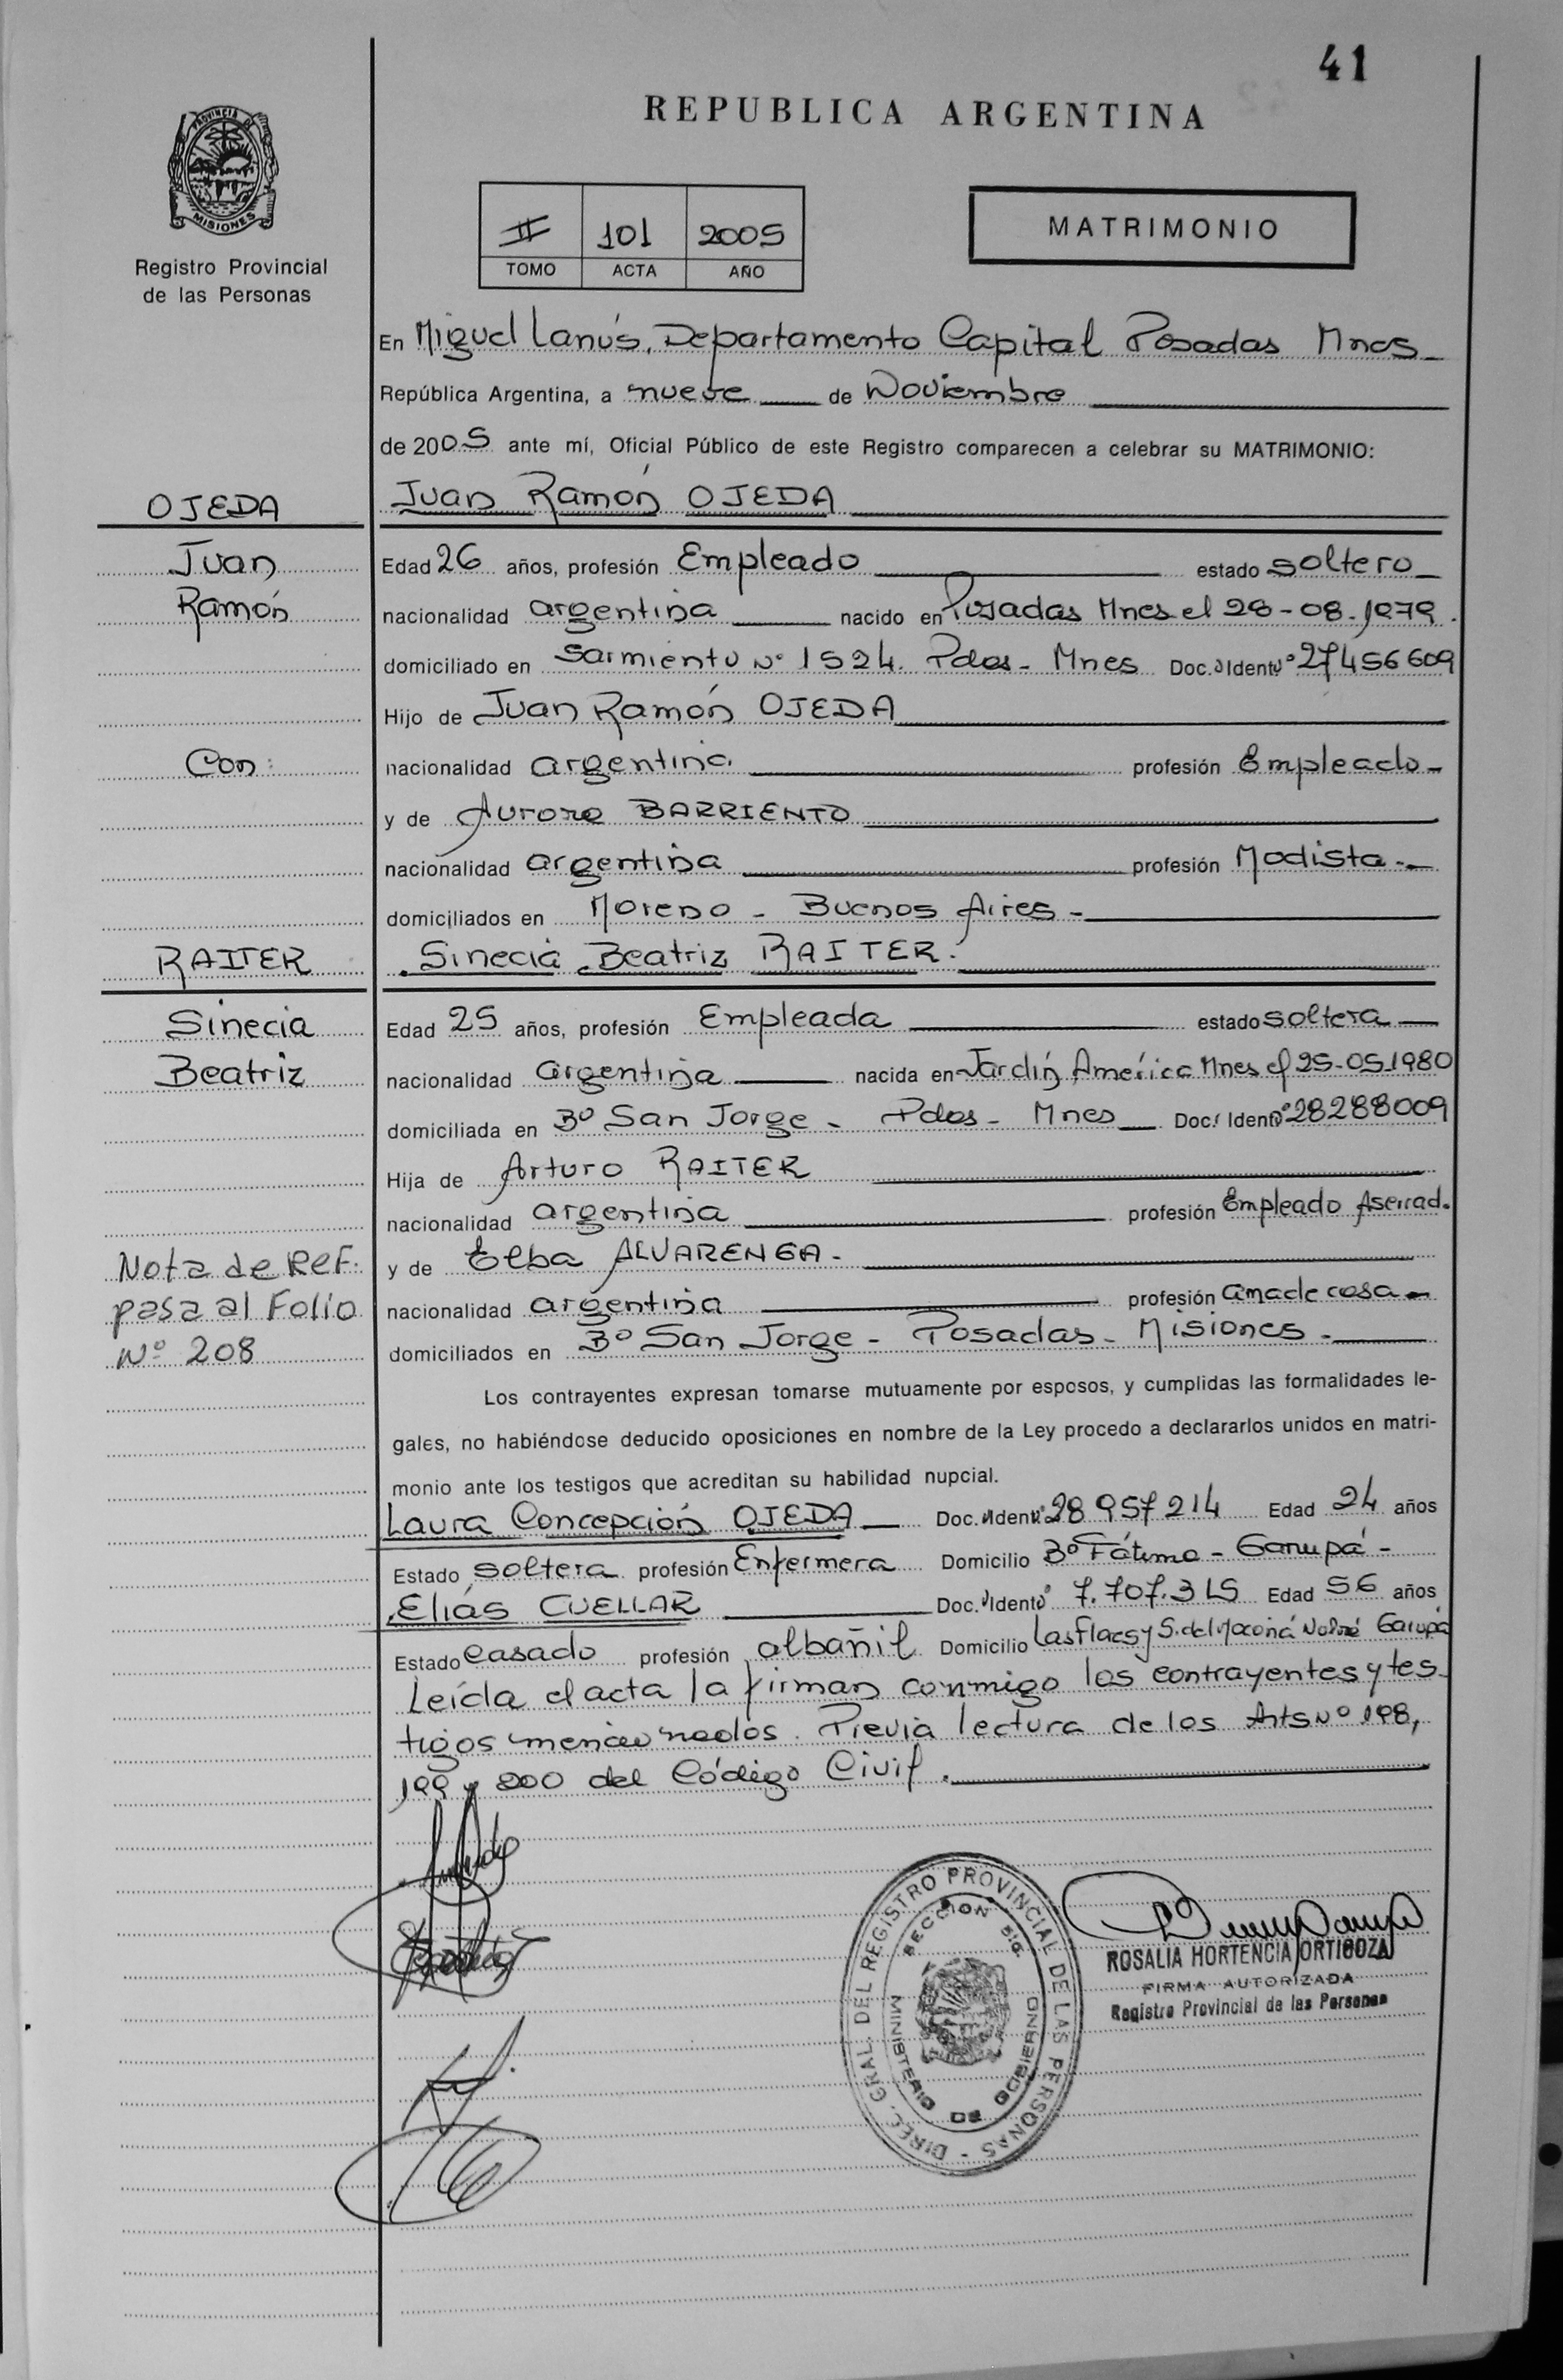 41
REPUBLICA ARGENTINA
PROVINCIA DE
MISIONES
Registro Provincial
de las Personas
II 101 2005
TOMO ACTA AÑO
MATRIMONIO
En Miguel Lanús, Departamento Capital Posadas Mnes
República Argentina, a nueve de Noviembre
de 2005 ante mí, Oficial Público de este Registro comparecen a celebrar su MATRIMONIO:
OJEDA
Juan Ramón OJEDA
Juan
Edad 26 años, profesión Empleado estado soltero
Ramón
nacionalidad argentina nacido en Posadas Mnes el 28-08-1979.
domiciliado en Sarmiento Nº 1524. Pdas- Mnes Doc. Ident Nº 27456609
Hijo de Juan Ramón OJEDA
Con:
nacionalidad argentina profesión Empleado-
y de Aurora BARRIENTO
nacionalidad argentina profesión Modista.-
domiciliados en Moreno - Buenos Aires -
RAITER
Sinecia Beatriz RAITER.
Sinecia
Edad 25 años, profesión Empleada estado soltera
Beatriz
nacionalidad argentina nacida en Jardín América Mnes el 25-05-1980
domiciliada en Bº San Jorge - Pdas- Mnes Doc. Ident Nº 28288009
Hija de Arturo RAITER
nacionalidad argentina profesión Empleado Aserrad.
Nota de Ref.
y de Elba ALVARENGA-
pasa al Folio
nacionalidad argentina profesión ama de casa
Nº 208
domiciliados en Bº San Jorge - Posadas - Misiones -
Los contrayentes expresan tomarse mutuamente por esposos, y cumplidas las formalidades le-
gales, no habiéndose deducido oposiciones en nombre de la Ley procedo a declararlos unidos en matri-
monio ante los testigos que acreditan su habilidad nupcial.
Laura Concepción OJEDA Doc. Ident Nº 28957214 Edad 24 años
Estado soltera profesión Enfermera Domicilio Bº Fátima - Garupá -
Elías CUELLAR Doc. Ident Nº 7.707.315 Edad 56 años
Estado casado profesión albañil Domicilio Las Flores y S. del Garupá
Leída el acta la firman conmigo los contrayentes y tes
tigos mencionados. Previa lectura de los Arts Nº 198,
199 y 200 del Código Civil.
DIREC. GRAL. DEL REGISTRO PROVINCIAL DE LAS PERSONAS
MINISTERIO DE GOBIERNO
ROSALIA HORTENCIA ORTIGOZA
FIRMA AUTORIZADA
Registro Provincial de las Personas